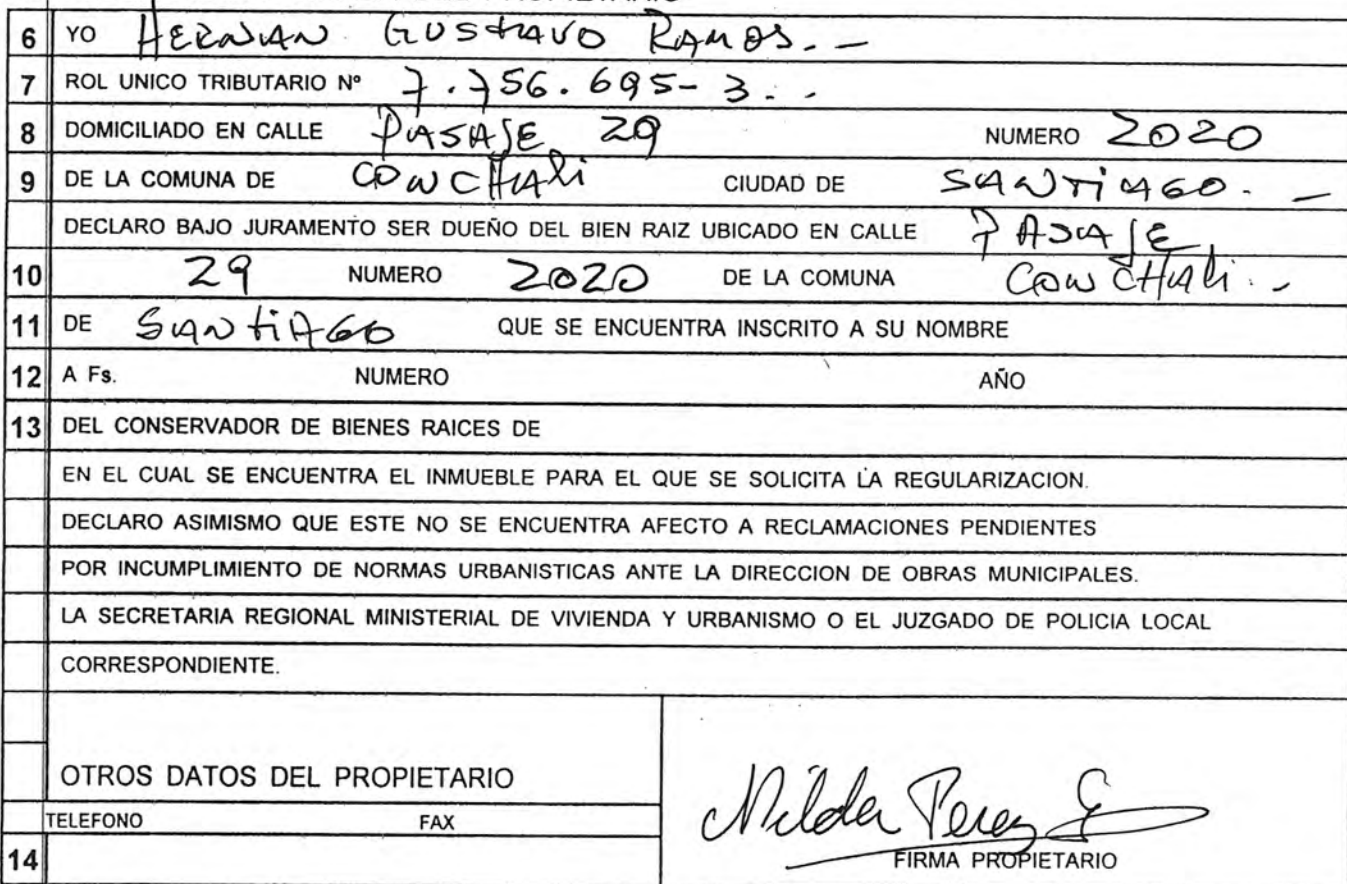 6 YO HERNAN GUSTAVO RAMOS. -
7 ROL UNICO TRIBUTARIO Nº 7.756.695-3. -
8 DOMICILIADO EN CALLE PASAJE 29 NUMERO 2020
9 DE LA COMUNA DE CONCHALI CIUDAD DE SANTIAGO. -
DECLARO BAJO JURAMENTO SER DUEÑO DEL BIEN RAIZ UBICADO EN CALLE PASAJE
10 29 NUMERO 2020 DE LA COMUNA CONCHALI. -
11 DE SANTIAGO QUE SE ENCUENTRA INSCRITO A SU NOMBRE
12 A Fs. NUMERO AÑO
13 DEL CONSERVADOR DE BIENES RAICES DE
EN EL CUAL SE ENCUENTRA EL INMUEBLE PARA EL QUE SE SOLICITA LA REGULARIZACION.
DECLARO ASIMISMO QUE ESTE NO SE ENCUENTRA AFECTO A RECLAMACIONES PENDIENTES
POR INCUMPLIMIENTO DE NORMAS URBANISTICAS ANTE LA DIRECCION DE OBRAS MUNICIPALES.
LA SECRETARIA REGIONAL MINISTERIAL DE VIVIENDA Y URBANISMO O EL JUZGADO DE POLICIA LOCAL
CORRESPONDIENTE.
OTROS DATOS DEL PROPIETARIO
TELEFONO FAX
14
Nilda Perez
FIRMA PROPIETARIO